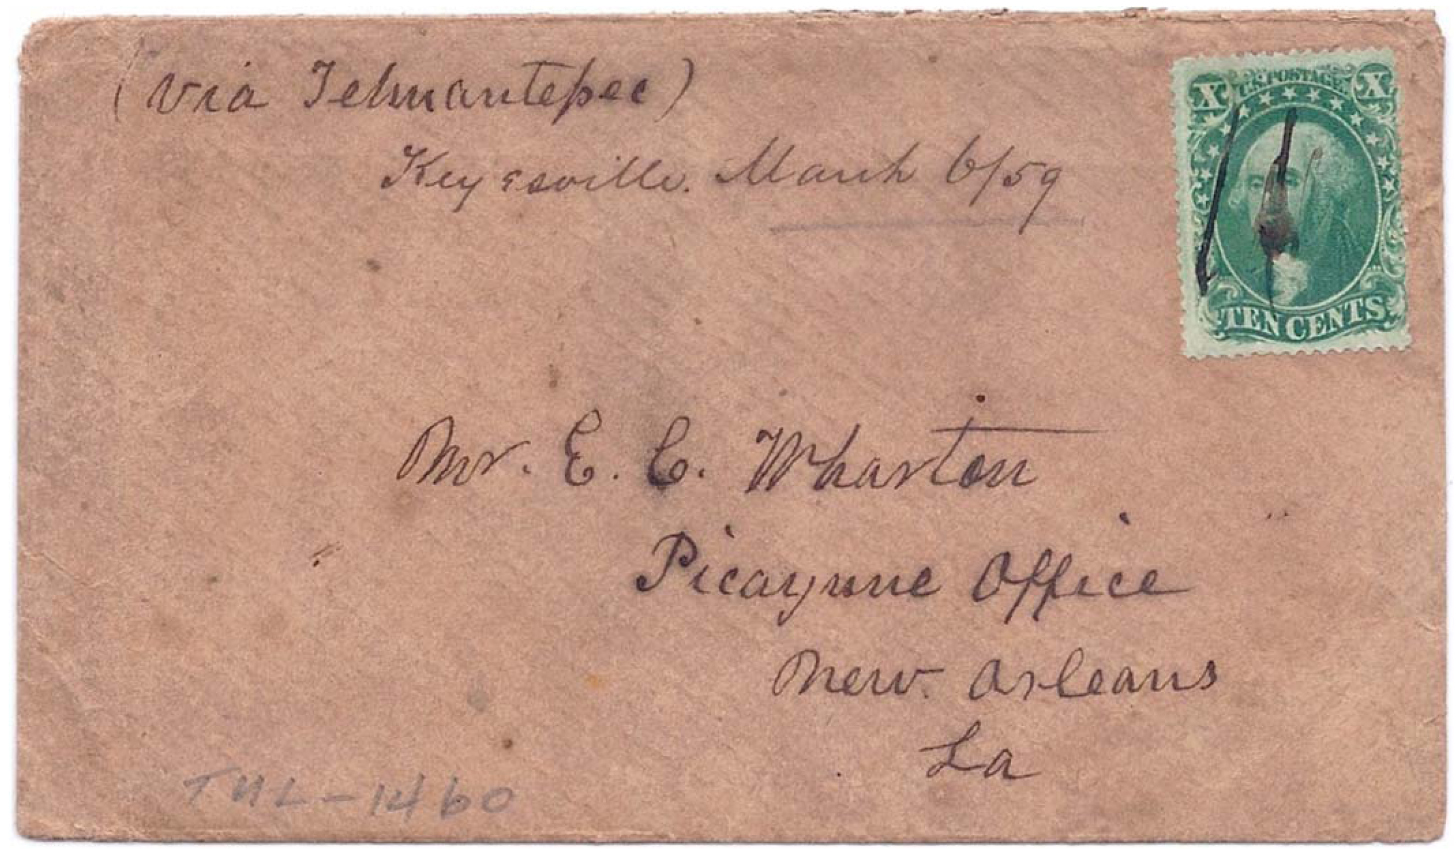 (Via Tehuantepec)
Keyesville. March 6/59
X U.S. POSTAGE X
TEN CENTS
Mr. E. C. Wharton
Picayune Office
New Orleans
La
TUL-1460